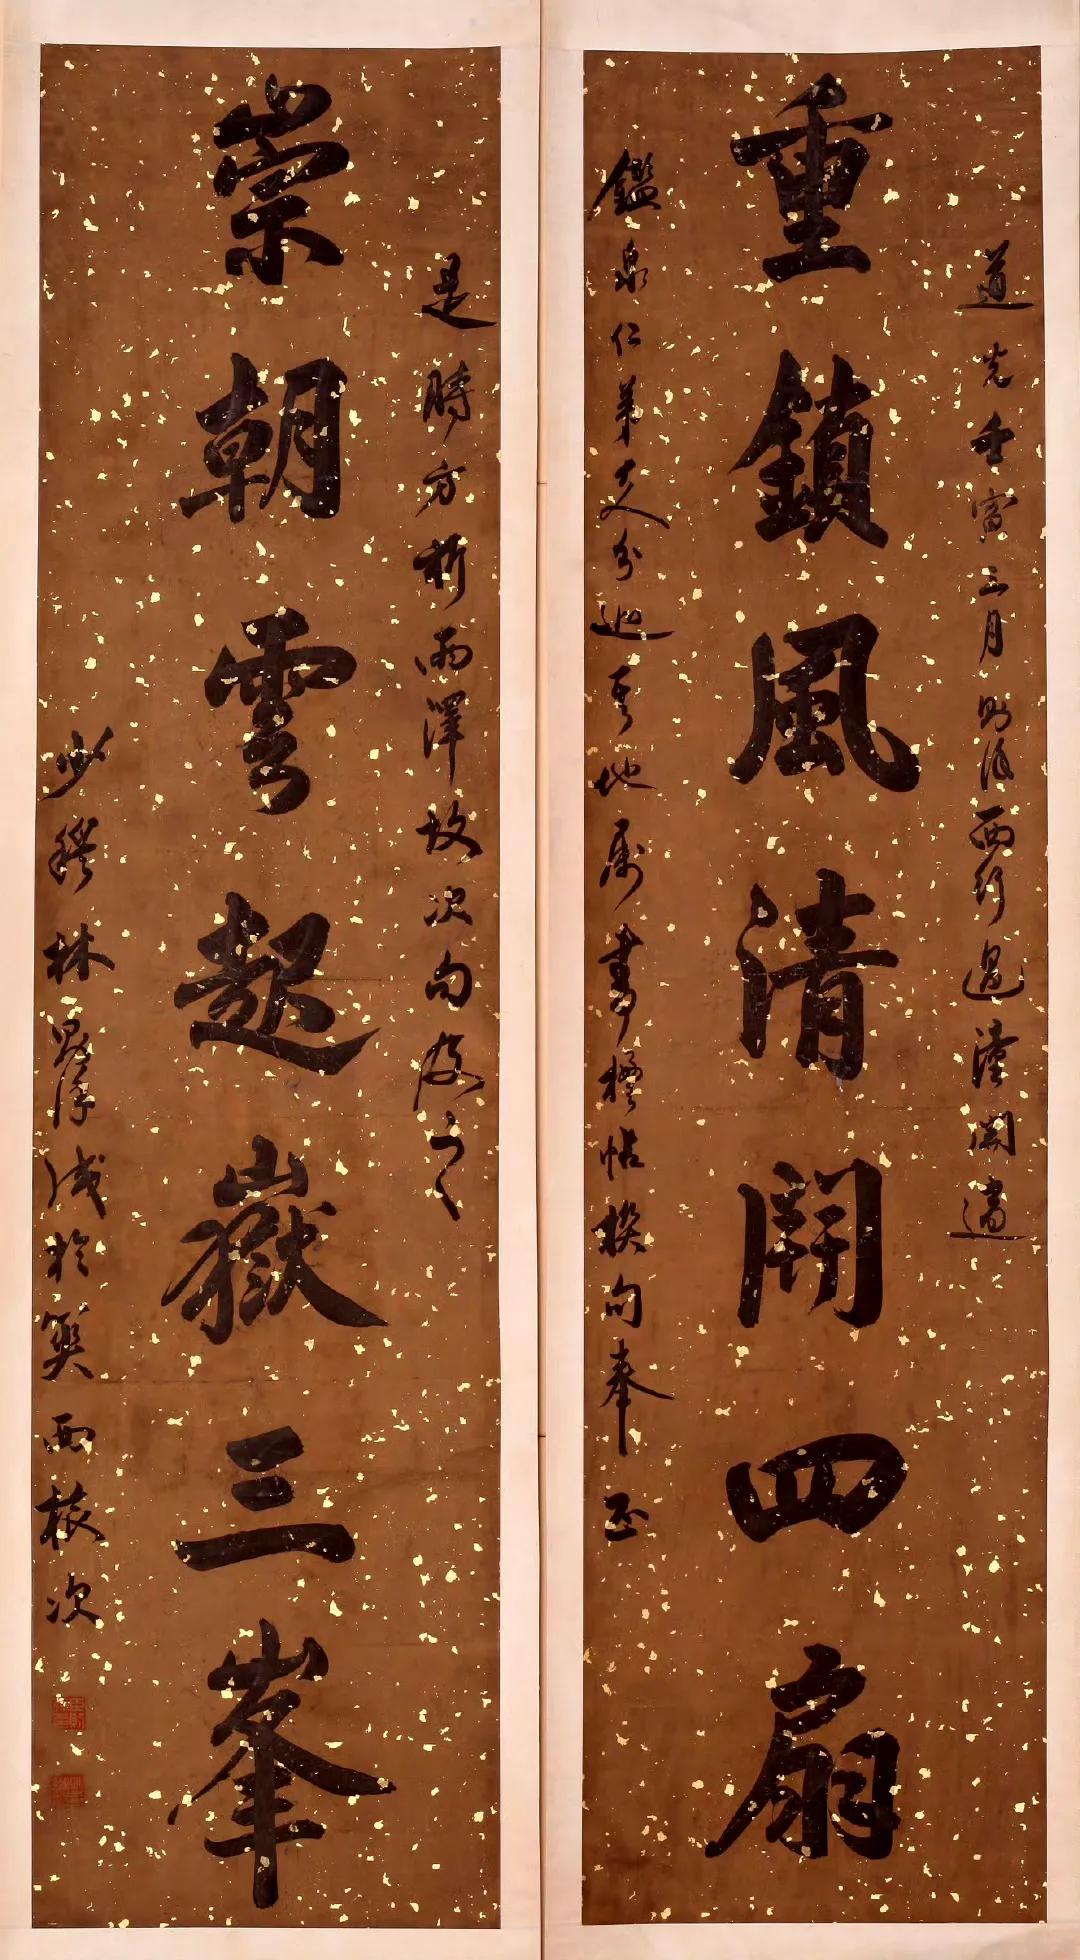 道光壬寅三月則徐西行過潼關適
重鎖風清開四扇
鑑泉仁弟大人分巡其地屬書楹帖撰句奉正
是時方祈雨澤故次句及之
崇朝雲起嶽三峯
少穆林則徐識於 西旅次